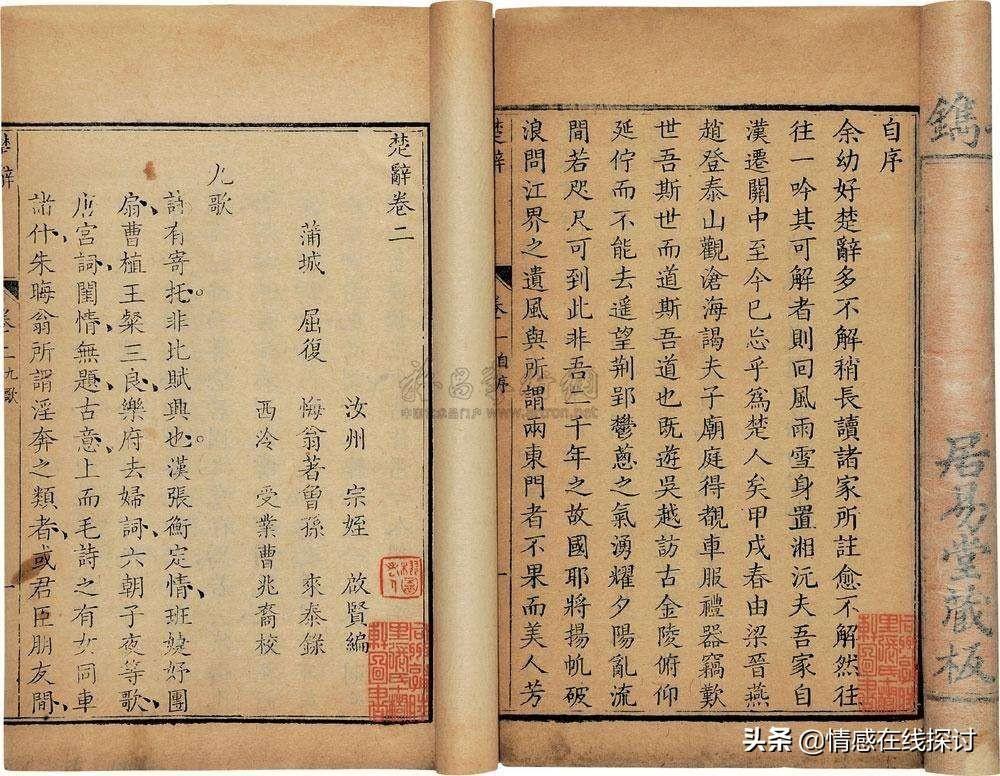 鐫
居易堂藏板
自序
余幼好楚辭多不解稍長讀諸家所註愈不解然往
往一吟其可解者則回風雨雪身置湘沅夫吾家自
漢遷關中至今已忘乎爲楚人矣甲戌春由梁晉燕
趙登泰山觀滄海謁夫子廟庭得觀車服禮器竊歎
世吾斯世而道斯吾道也既遊吳越訪古金陵俯仰
延佇而不能去遥望荆郢鬱蔥之氣湧耀夕陽亂流
間若咫尺可到此非吾二千年之故國耶將揚帆破
浪問江界之遺風與所謂兩東門者不果而美人芳
楚辭
卷一自序
一
楚辭卷二
汝州 宗姪 啟賢編
蒲城 屈復 悔翁著曾孫 來泰錄
西泠 受業曹兆裔校
九歌
詩有寄托非比賦興也漢張衡定情班婕妤團
扇曹植王粲三良樂府去婦詞六朝子夜等歌
唐宮詞閨情無題古意上而毛詩之有女同車
諸什朱晦翁所謂淫奔之類者或君臣朋友間
楚辭
卷二九歌
一
头条 @情感在线探讨